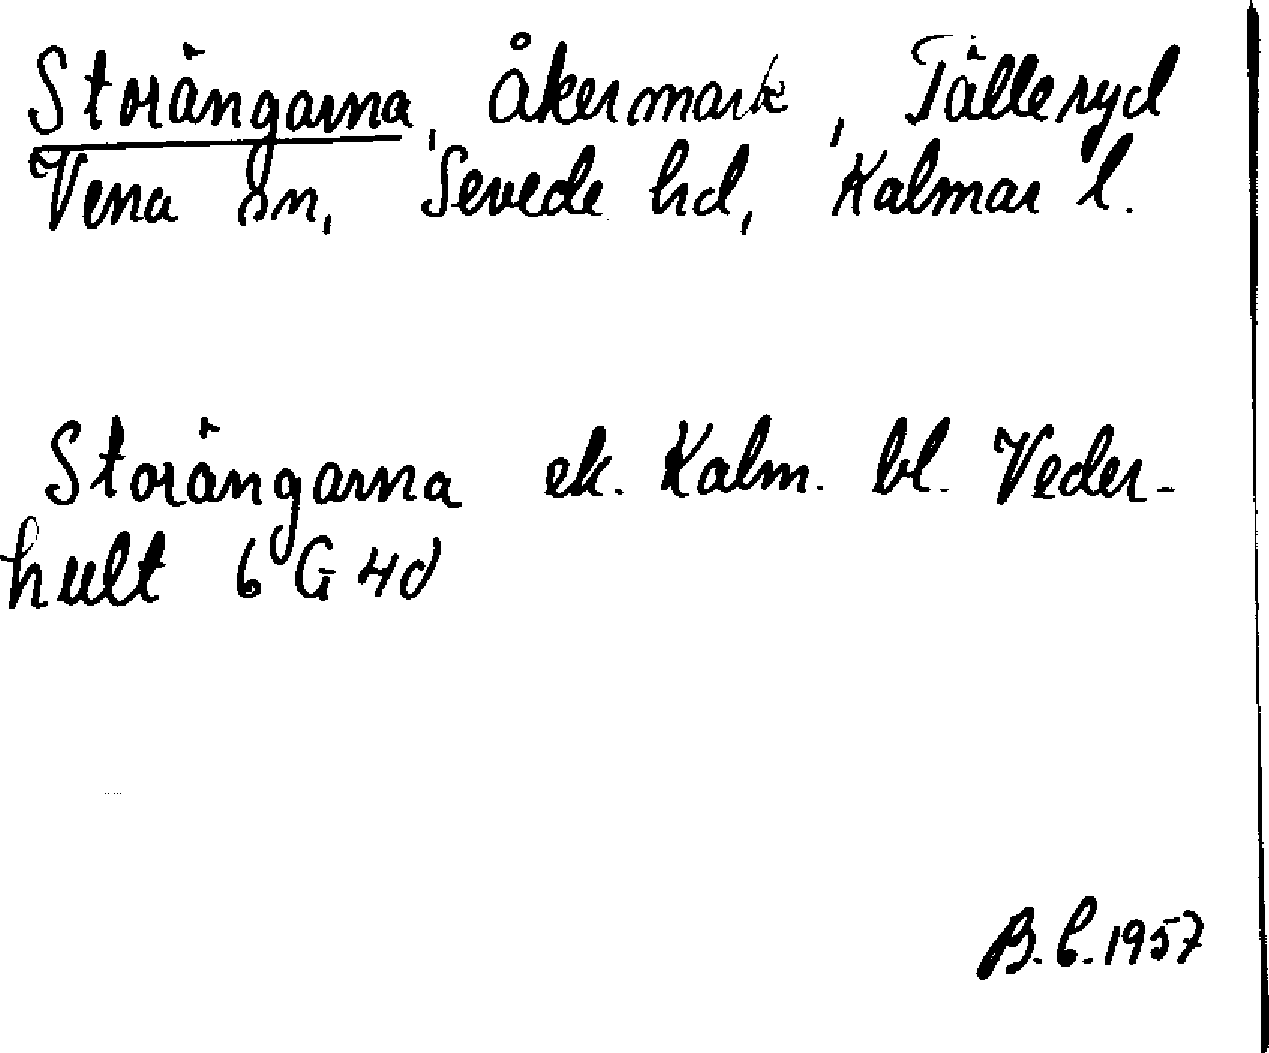 Storängarna, åkermark, Tälleryd
Vena sn, Sevede hd, Kalmar l.
Storängarna ek. Kalm. bl. Veder-
hult 6 G 4d
B.C. 1957